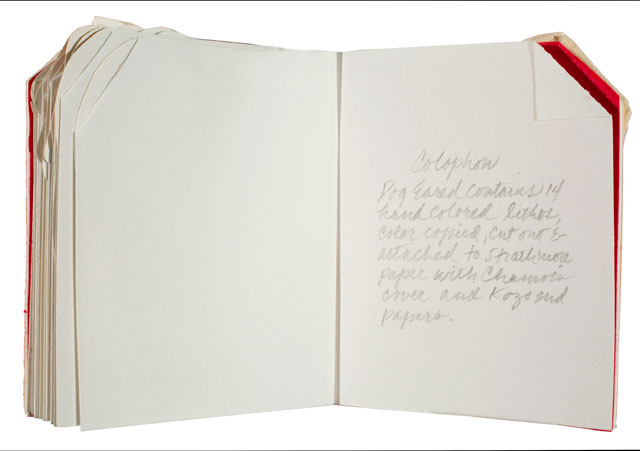 Colophon
Dog Eared contains 14
hand colored lithos,
color copied, cut out &
attached to Strathmore
paper with Chamois
cover and Kozo end
papers.